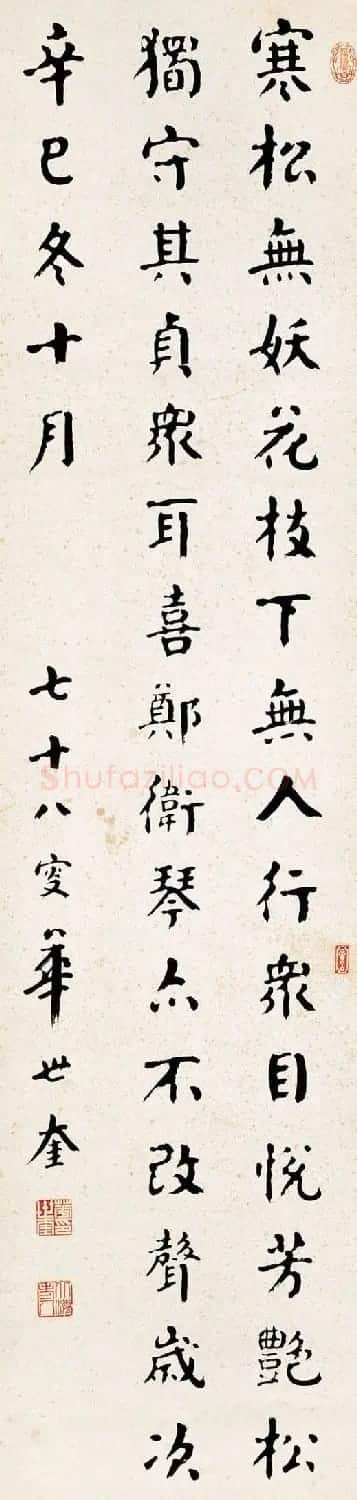 寒松無妖花枝下無人行衆目悅芳艷松
獨守其貞衆耳喜鄭衛琴亦不改聲歲次
辛巳冬十月
七十八叟華世奎
Shufaziliao.COM